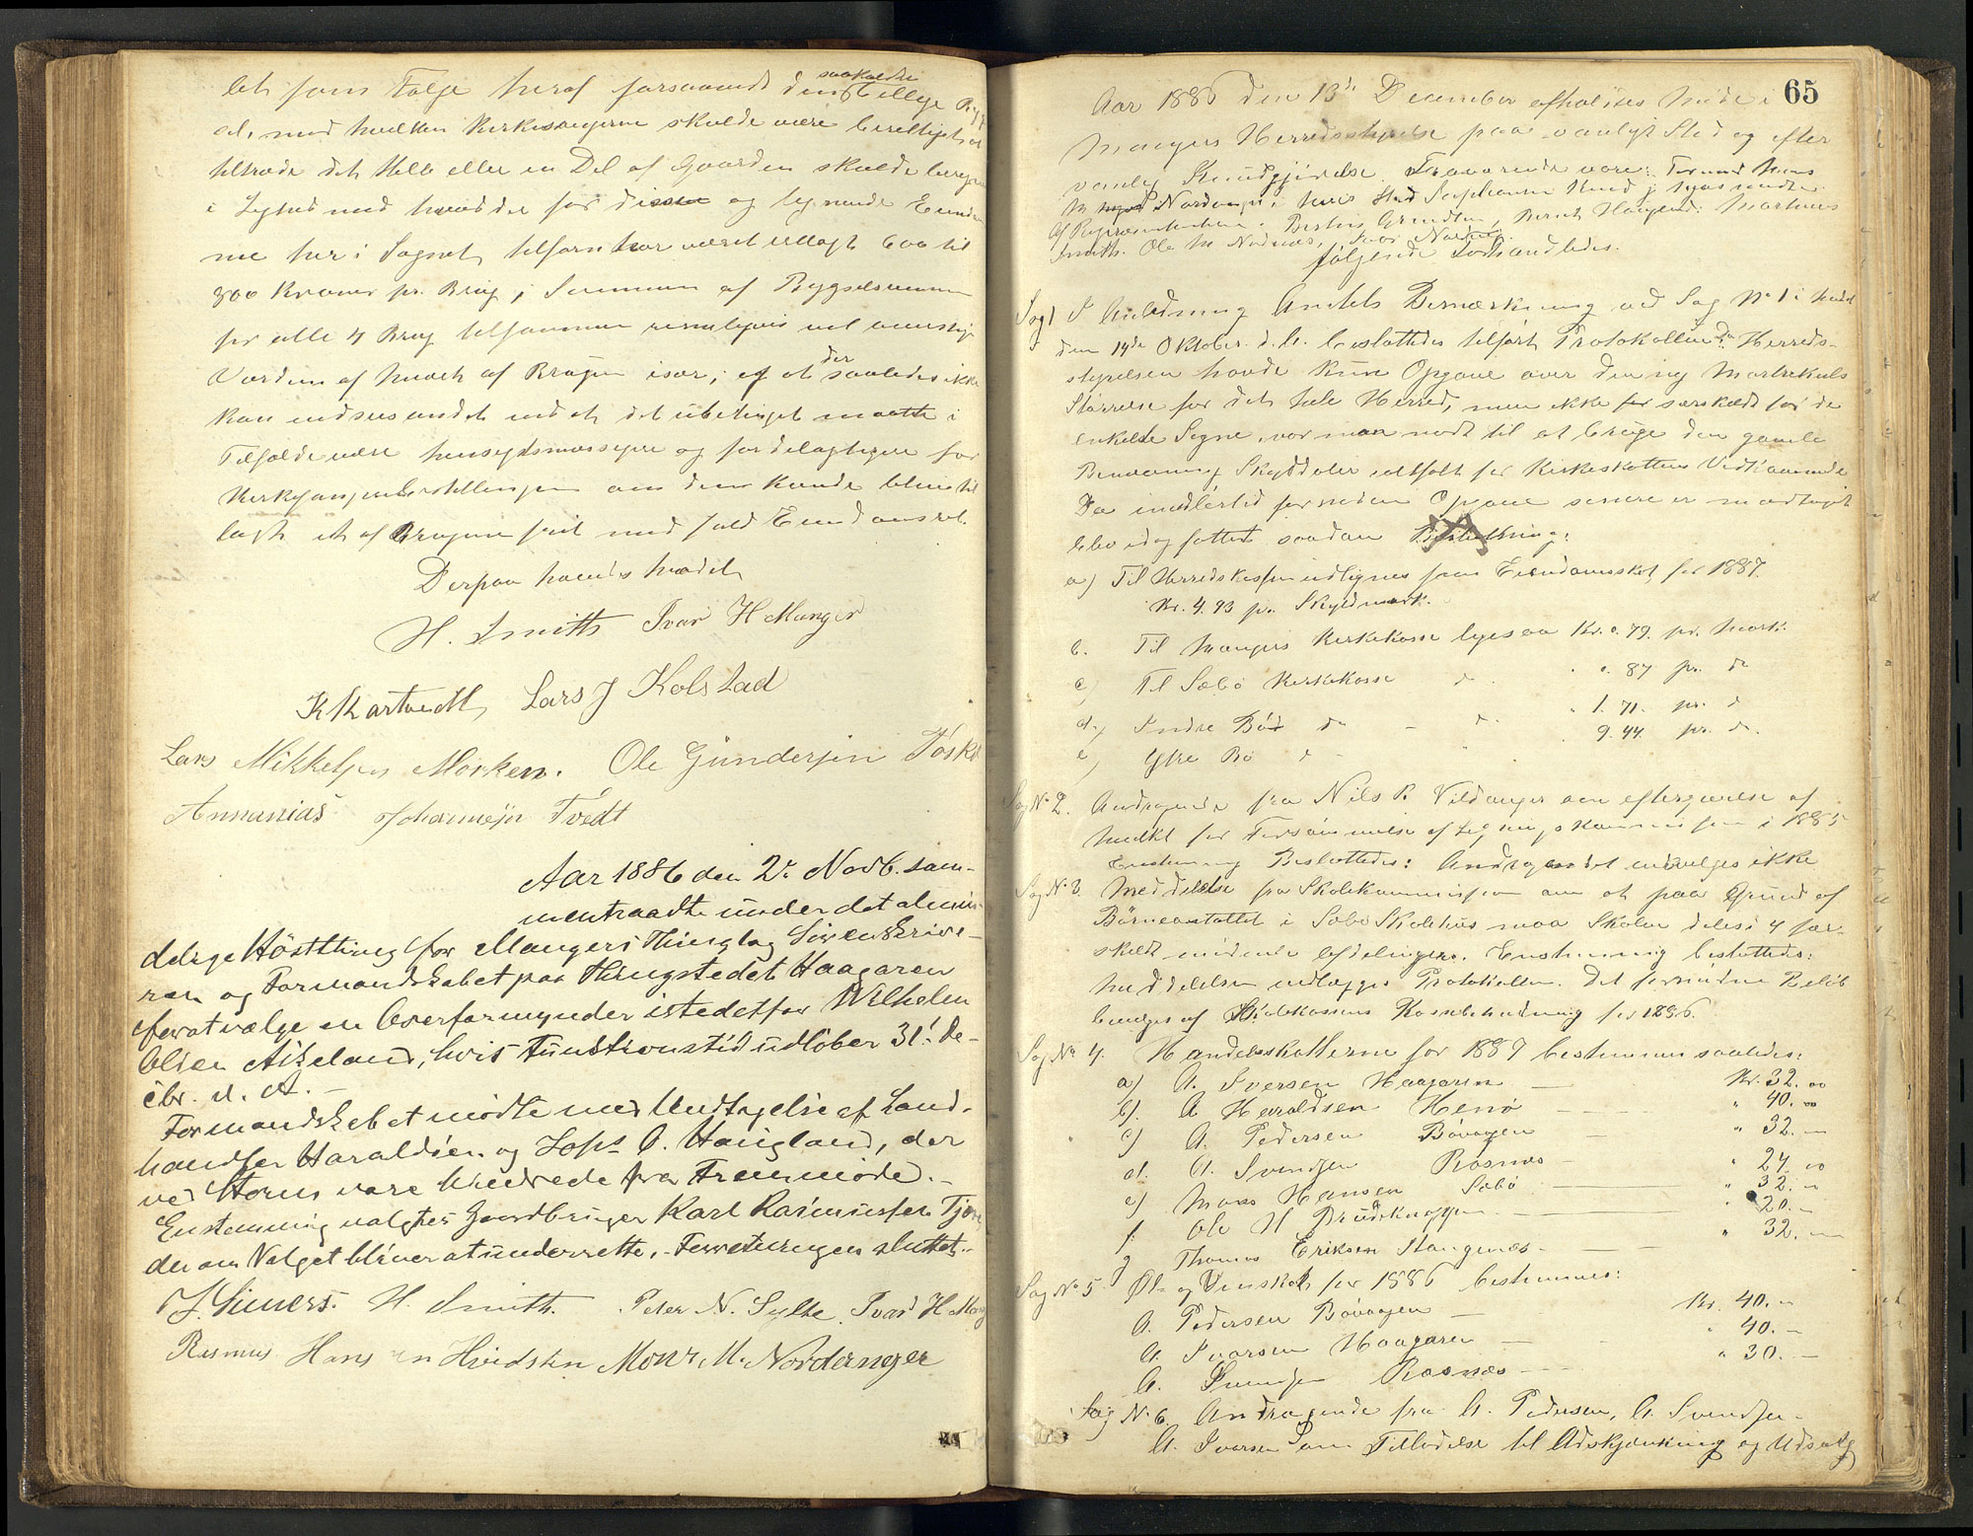 saakaldte
let som Følge heraf forsaavidt den stillige Byg
sel, med hvilken Kirkesangeren skulde være berettiget at
tiltræde det Hele eller en Del af Gaarden skulde beregnes
i Lighed med hvad der for disse og lignende Eiendom
me her i Sognet tilforn har været udlagt 600 til
800 Kroner pr. Brug, i Summen af Bygselsummen
for alle 4 Brug tilsammen rimeligvis vil overstige
der
Værdien af hvert af Brugene især; og at saaledes ikke
kan indsees andet end at det ubetinget maatte i
Tilfælde være hensigtsmæssigere og fordelagtigere for
Kirkesangerbestillingen om den kunde blive til
lagt et af Brugene frit med fuld Eiendomsret.
Derpaa hævedes Mødet
H. Smitth Ivar H Manger
K Kartvedt, Lars J Kolstad
Lars Mikkelsen Morken. Ole Gundersen Toska
Annanias Johannesen Tvedt
Aar 1886 den 2de Novb. sam-
mentraadte under det almin-
delige Høstthing for Mangers Thinglag Sorenskrive-
ren og Formandskabet paa Thingstedet Haagaren
for at vælge en Overformynder istedetfor Wilhelm
Olsen Askeland, hvis Funktionstid udløber 31' De-
cbr. d. A. -
Formandskabet mødte med Undtagelse af Land-
handler Haraldsen og Johs O. Haugland, der
ved Storm vare hindrede fra Fremmøde. -
Enstemmig valgtes Gaardbruger Karl Rasmussen Tjore
der om Valget bliver at underrette. - Forretningen sluttet. -
J. Siewers. H. Smith. Peter N. Sylte. Ivar H Mang
Rasmus Hansen Hvidsten Mons M. Nordanger
65
Aar 1886 den 13de December afholdtes Møde i
Mangers Herredsstyrelse paa vanligt Sted og efter
vanlig Kundgjørelse. Fraværende vare: Formd Mons
M Nordanger, i hvis Sted Suppleanten Knud
Af Repræsentanterne: Bertin Grindten, Berent Haugland, Martinus
Smith. Ole M Nordnæs,
følgende forhandledes.
Sag 1 I Anledning Amtets Bemærkning ved Sag No 1 i Mødet
den 14de Oktober d. A. besluttedes tilført Protokollen: Da Herreds-
styrelsen havde kun Opgave over den ny Matrikuls
Størrelse for det hele Herred, men ikke for særskildt for de
enkelte Sogne, var man nødt til at bruge den gamle
Benævning Skylddaler ialtfald for Kirkeskatten Vedkommende
Da imidlertid fornøden Opgave senere er modtaget
blev idag fattet saadan Beslutning:
a) Til Herredskassen udlignes som Eiendomsskat for 1887.
Kr. 4.93 pr. Skyldmark.
b. Til Mangers Kirkekasse ligesaa Kr. 0.79. pr. Mark.
c) Til Sæbø Kirkekasse do " 0. 87 pr. do
d.) Indre Bø do - do " 1. 71. pr. do
e) Ytre Bø do " 9. 44 pr. do.
Sag No 2. Andragende fra Nils R. Vildanger om eftergivelse af
Mulkt for Forsømmelse af Ligningskommissionen i 1885
Enstemmig Besluttedes: Andragendet indvilges ikke
Sag No 3. Meddelelse fra Skolekommissionen om at paa Grund af
Børneantallet i Sæbø Skolehus maa Skolen deles i 4 sær-
skildt afdelinger. Enstemmig besluttedes:
Meddelelsen vedlægges Protokollen. Det fornødne Beløb
bevilges af Skolekassens Kassebeholdning for 1886.
Sag No 4. Handelsskatterne for 1887 bestemmes saaledes:
a) A. Iversen Haagaren — Kr. 32. 00
b). A Haraldsen Herø — " 40. 00
c) A. Pedersen Bøvaagen — " 32. —
d. A. Svendsen Rosnæs — " 24. 00
e) Mons Hansen Sæbø — " 32. —
f. Ole H Brudeknappen — " 20. —
g Thomas Eriksen Stangenæs. — " 32. —
Sag No 5. Øl- og Vinskat for 1886 bestemmes:
A. Pedersen Bøvaagen — Kr. 40. —
A. Ivarsen Haagaren — " 40. —
A. Svendsen Rosnæs — " 30. —
Sag No 6. Andragende fra A. Pedersen, A. Svendsen.
A. Ivarsen om Tilladelse til Udskjænkning og Udsalg